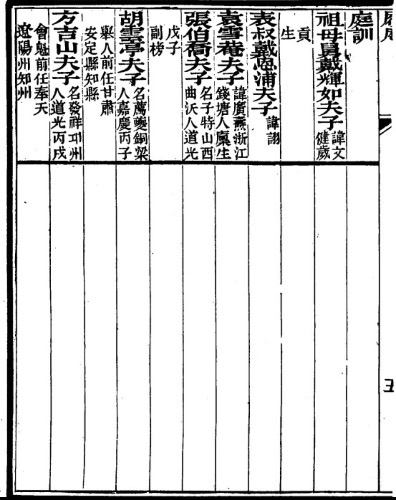 庭訓
祖母舅戴輝如夫子 諱文健歲
貢生
表叔戴恩浦夫子 諱詡
袁雪菴夫子 諱廣燕浙江錢塘人廩生
張伯喬夫子 名子特山西曲沃人道光
戊子副榜
胡雲亭夫子 名薦夔銅梁人嘉慶丙子
舉人前任甘肅安定縣知縣
方吉山夫子 名發祥邛州人道光丙戌
會魁前任奉天遼陽州知州
五